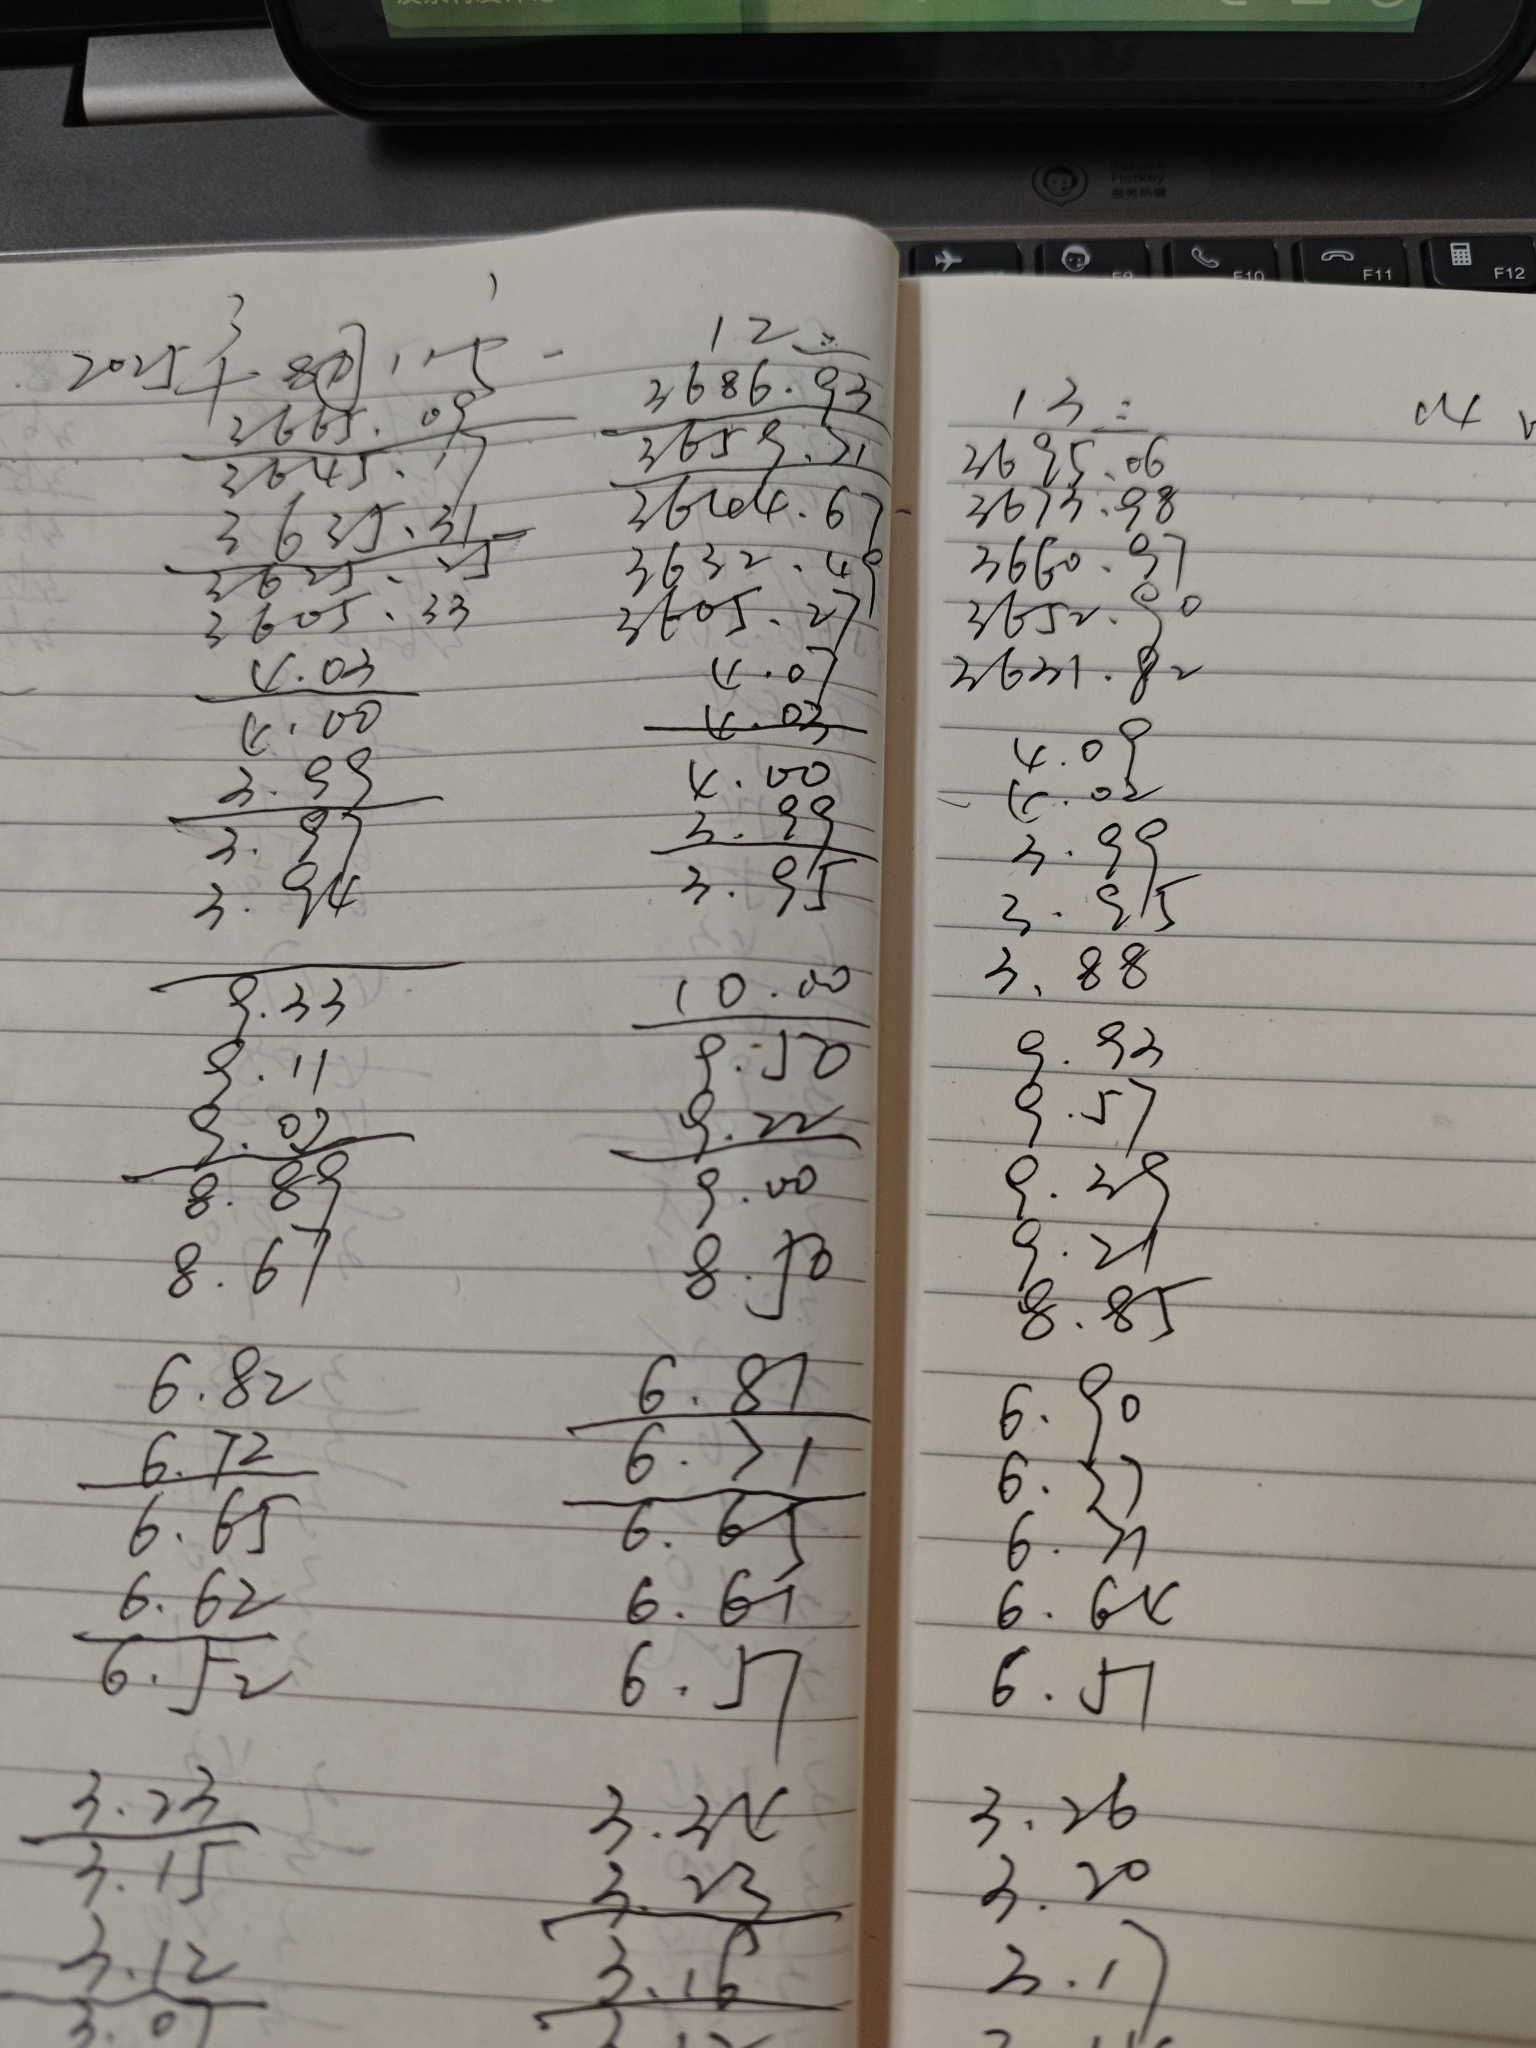 Service
Hotkey
服务热键
F9
F10
F11
F12
2025年 8月 11
3665.09
3645.17
3635.31
3625.25
3605.33
4.03
4.00
3.99
3.97
3.94
9.33
9.11
9.02
8.89
8.67
6.82
6.72
6.65
6.62
6.52
3.23
3.15
3.12
3.07
12=
3686.93
3659.31
3644.67
3632.49
3605.27
4.07
4.03
4.00
3.99
3.95
10.00
9.50
9.22
9.00
8.50
6.87
6.71
6.65
6.61
6.57
3.34
3.23
3.16
13=
3695.06
3673.98
3660.97
3652.90
3631.82
4.09
4.02
3.99
3.95
3.88
9.93
9.57
9.29
9.21
8.85
6.90
6.77
6.71
6.64
6.57
3.26
3.20
3.17